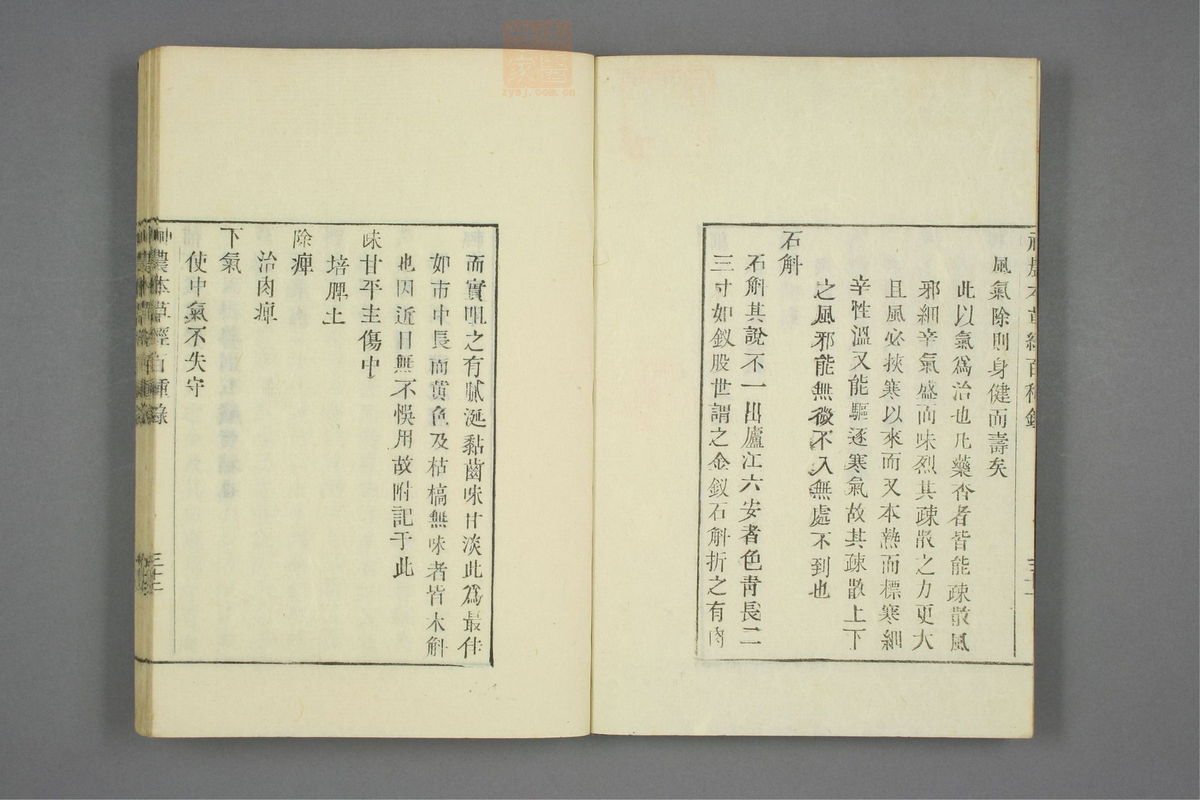 風氣除則身健而壽矣
此以氣爲治也凡藥香者皆能疎散風
邪細辛氣盛而味烈其疎散之力更大
且風必挾寒以來而又本熱而標寒細
辛性溫又能驅逐寒氣故其疎散上下
之風邪能無微不入無處不到也
石斛
石斛其說不一出廬江六安者色靑長二
三寸如釵股世謂之金釵石斛折之有肉
而實咀之有膩涎黏齒味甘淡此爲最佳
如市中長而黃色及枯槁無味者皆木斛
也因近日無不悞用故附記于此
味甘平主傷中
培脾土
除痺
治肉痺
下氣
使中氣不失守
神農本草經百種錄
三十二
zysj.com.cn